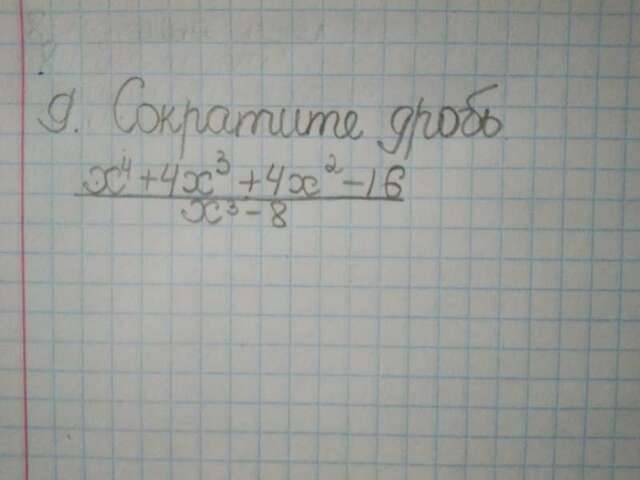 9. Сократите дробь.
x⁴+4x³+4x²-16
x³-8